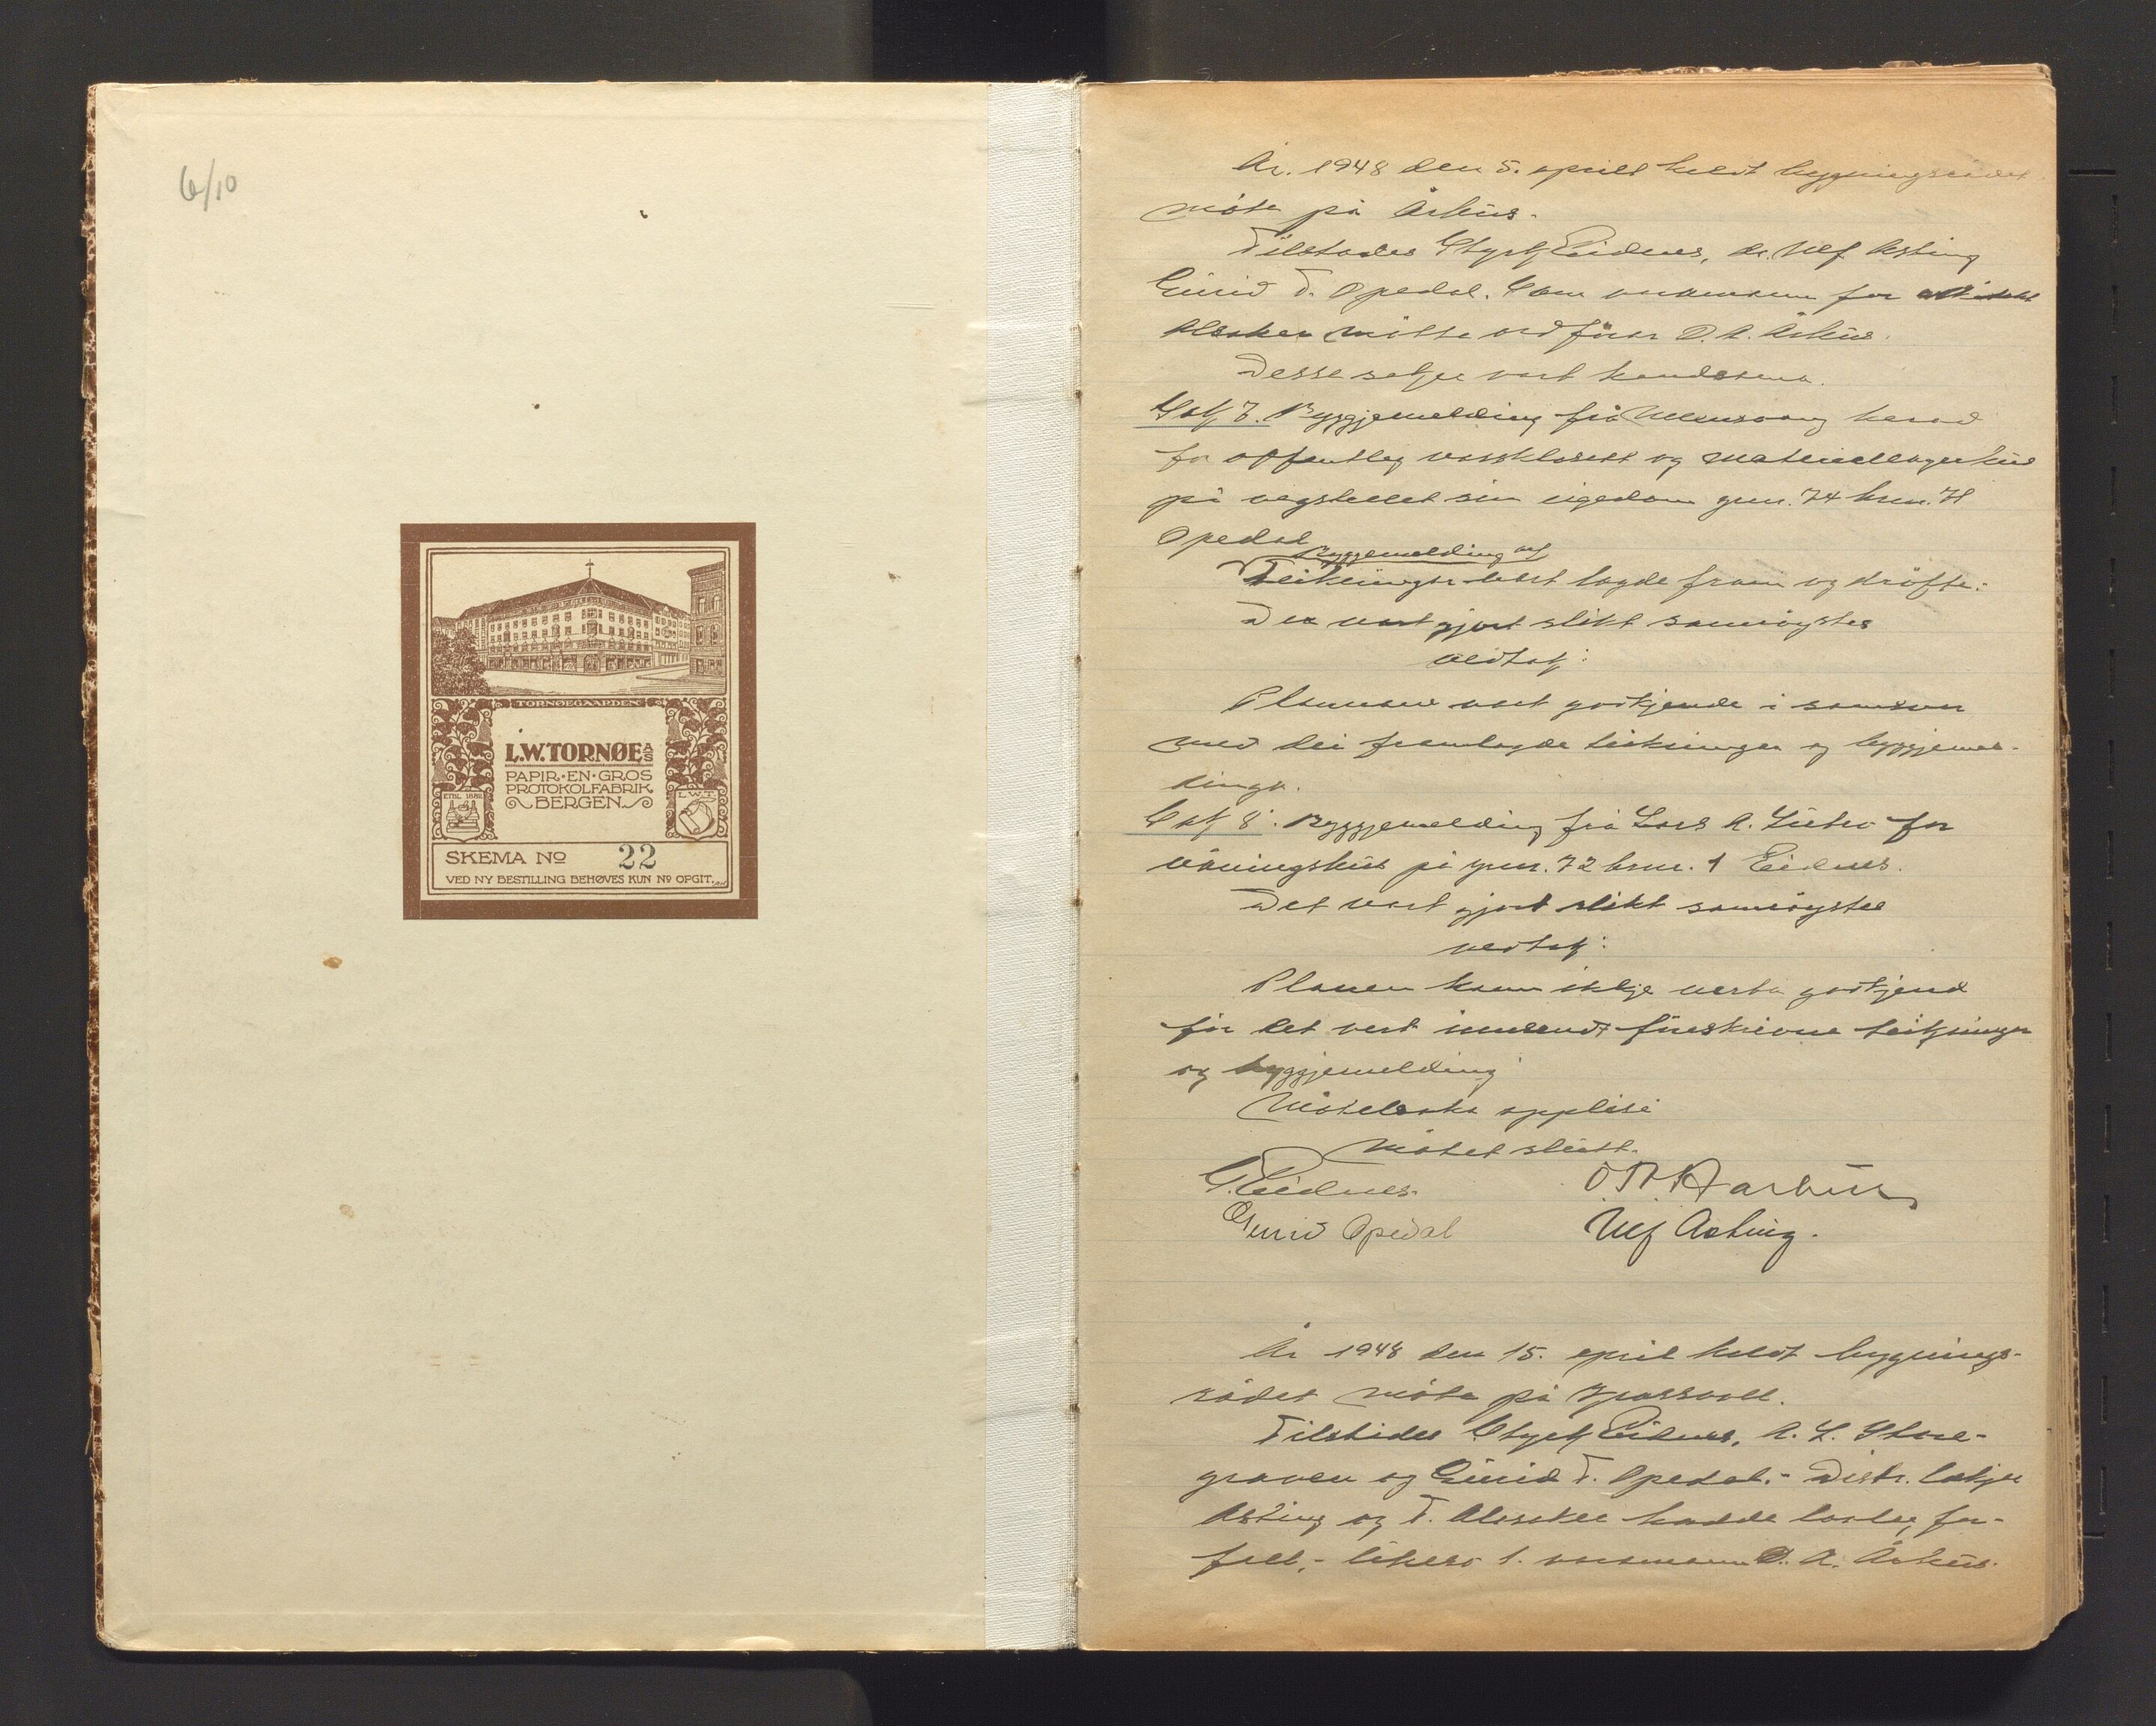 6/10
TORNØEGAARDEN
L.W.TORNØE A/S
PAPIR·EN·GROS
PROTOKOLFABRIK
BERGEN
ETBL. 1882
L.W.T.
SKEMA No 22
VED NY BESTILLING BEHØVES KUN No OPGIT.
År. 1948 den 5. april heldt bygningsrådet
møte på Århus.
Tilstades Styrk Eidnes, dr. Ulf Asting
Gurid T. Opedal. Som varamann for
Alsaker møtte ordførar O. A. Århus.
Desse saker vart handsama.
Sak 7. Byggjemelding frå Ullensvang herad
for offentleg vassklosett og materiellagerhus
på vegstellet sin eigedom gnr. 74 bnr. 71
Opedal
Byggjemelding og
Teikningar vart lagde fram og drøfte.
Det vart gjort slikt samrøystes
vedtak:
Planane vart godkjende i samsvar
med dei framlagde teikningar og byggjemel-
dinga.
Sak 8. Byggjemelding frå Lars A. Lutro for
våningshus på gnr. 72 bnr. 1 Eidnes.
Det vart gjort slikt samrøystes
vedtak:
Planen kann ikkje verta godkjend
før det vert innsendt føreskrivne teikningar
og byggjemelding
Møteboka opplesi
Møtet slutt.
S. Eidnes. O. A. Aarhus
Gurid Opedal Ulf Asting.
År 1948 den 15. april heldt bygnings-
rådet møte på
Tilstades Styrk Eidnes, A. L. Stane-
graven og Gurid T. Opedal.- Distr. lækjar
Asting og T. Alsaker hadde lovleg for-
fall,- likeso 1. varamann O. A. Århus.